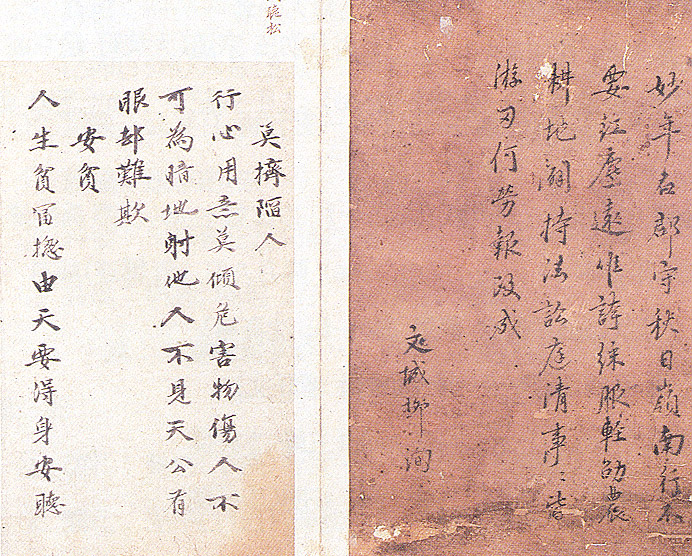 妙年名郡守秋日嶺南行不
要紅塵遠惟誇綵服輕勸農
耕地闢持法訟庭清事〻皆
游刃何勞報政成
文城柳洵
莫擠陷人
行心用意莫傾危害物傷人不
可為暗地射他人不見天公有
眼却難欺
安貧
人生貧富摠由天要得身安聽